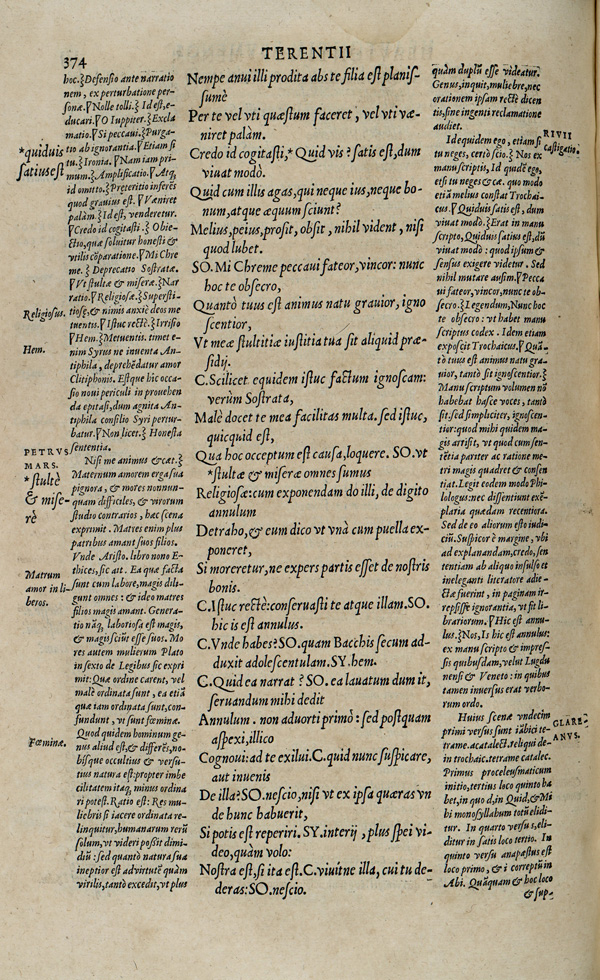 374
TERENTII
hoc.ξDefensio ante narratio
nem, ex perturbatione per-
sonæ.ꟼNolle tolli.ξ Id est, e-
ducari.ꟼO Iuppiter.ξExcla
matio.ꟼSi peccaui.ξPurga-
tio ab ignorantia.ꟼEtiam si
tu.ξ Ironia.ꟼNam iam pri-
mum.ξAmplificatio.ꟼAtq;
id omitto.ξPreteritio inferēs
quod grauius est.ꟼVæniret
palàm.ξId est, venderetur.
ꟼCredo id cogitasti.ξ Obie-
ctio, quæ soluitur honesti &
vtilis cōparatione.ꟼMi Chre
me.ξ Deprecatio Sostratæ.
ꟼVt stultæ & miseræ.ξNar
ratio.ꟼReligiosæ.ξSupersti-
tiosę, & nimis anxiè deos me
tuentis.ꟼIstuc rectè.ξIrrisio
ꟼHem.ξMetuentis. timet e-
nim Syrus ne inuenta An-
tiphila, deprehēdatur amor
Clitiphonis. Estque hic occa-
sio noui periculi in prouehen
da epitasi, dum agnita An-
tiphila consilio Syri pertur-
batur.ꟼNon licet.ξ Honesta
sententia.
Nisi me animus &cæt.ξ
Maternum amorem erga sua
pignora, & mores nonnun-
quam difficiles, & virorum
studio contrarios, hæc scena
exprimit. Matres enim plus
patribus amant suos filios.
Vnde Aristo. libro nono E-
thices, sic ait. Ea quæ facta
sunt cum labore, magis dili-
gunt omnes: & ideo matres
filios magis amant. Genera-
tio nāq; laboriosa est magis,
& magis sciūt esse suos. Mo
res autem mulierum Plato
in sexto de Legibus sic expri
mit: Quæ ordine carent, vel
malè ordinata sunt, ea etiā
quæ tam ordinata sunt, con-
fundunt, vt sunt fœminæ.
Quod quidem hominum ge-
nus aliud est, & differēs, no-
bisque occultius & versu-
tius natura est: propter imbe
cilitatem itaq; minus ordina
ri potest. Ratio est: Res mu-
liebris si iacere ordinata re-
linquitur, humanarum rerū
solum, vt videri possit dimi-
diū: sed quantò natura sua
ineptior est ad virtutē quàm
virilis, tantò excedit, vt plus
*quiduis
satius est
Religiosus.
Hem.
PETRVS
MARS.
*stultè
& mise-
rè
Matrum
amor in li-
beros.
Fœminæ.
Nempe anui illi prodita abs te filia est planis-
sumè
Per te vel vti quæstum faceret, vel vti væ-
niret palàm.
Credo id cogitasti,* Quid vis? satis est, dum
viuat modò.
Quid cum illis agas, qui neque ius, neque bo-
num, atque æquum sciunt?
Melius, peius, prosit, obsit, nihil vident, nisi
quod lubet.
SO. Mi Chreme peccaui fateor, vincor: nunc
hoc te obsecro,
Quantò tuus est animus natu grauior, igno
scentior,
Vt meæ stultitiæ iustitia tua sit aliquid præ-
sidij.
C. Scilicet equidem istuc factum ignoscam:
verùm Sostrata,
Malè docet te mea facilitas multa. sed istuc,
quicquid est,
Qua hoc occeptum est causa, loquere. SO. vt
*stultæ & miseræ omnes sumus
Religiosæ: cum exponendam do illi, de digito
annulum
Detraho, & eum dico vt vnà cum puella ex-
poneret,
Si moreretur, ne expers partis esset de nostris
bonis.
C. Istuc rectè: conseruasti te atque illam. SO.
hic is est annulus.
C. Vnde habes? SO. quam Bacchis secum ad-
duxit adolescentulam. SY. hem.
C. Quid ea narrat? SO. ea lauatum dum it,
seruandum mihi dedit
Annulum. non aduorti primò: sed postquam
aspexi, illico
Cognoui: ad te exilui. C. quid nunc suspicare,
aut inuenis
De illa? SO. nescio, nisi vt ex ipsa quæras vn
de hunc habuerit,
Si potis est reperiri. SY. interij, plus spei vi-
deo, quàm volo:
Nostra est, si ita est. C. viuítne illa, cui tu de-
deras: SO. nescio.
quàm duplū esse videatur.
Genus, inquit, muliebre, nec
orationem ipsam rectè dicen
tis, sine ingenti reclamatione
audiet.
Id equidem ego, etiam si
tu neges, certò scio.ξ Nos ex
manuscriptis, Id quidē ego,
etsi tu neges &cæ. quo modo
etiā melius constat Trochai-
cus.ꟼQuiduis satis est, dum
viuat modò.ξErat in manu
scripto, Quiduis satius est, dū
viuat modò: quod ipsum &
sensus exigere videtur. Sed
nihil mutare ausim.ꟼPecca
ui fateor, vincor, nunc te ob-
secro.ξLegendum, Nunc hoc
te obsecro: vt habet manu
scriptus codex. Idem etiam
exposcit Trochaicus.ꟼQuā-
tò tuus est animus natu gra-
uior, tantò sit ignoscentior.ξ
Manuscriptum volumen nō
habebat hasce voces, tantò
sit. sed simpliciter, ignoscen-
tior: quod mihi quidem ma-
gis arrisit, vt quod cum sen-
tētia pariter ac ratione me-
tri magis quadret & consen
tiat. Legit codem modo Phi-
lologus: nec dissentiunt exē-
plaria quædam recentiora.
Sed de eo aliorum esto iudi-
ciū. Suspicor è margine, vbi
ad explanandam, credo, sen
tentiam ab aliquo insulso et
ineleganti literatore adie-
cta fuerint, in paginam ir-
repsisse ignorantia, vt fit li-
brariorum.ꟼHic est annu-
lus.ξNos, Is hic est annulus:
ex manu scripto & impres-
sis quibusdam, velut Lugdu
nensi & Veneto: in quibus
tamen inuersus erat verbo-
rum ordo.
Huius scenæ vndecim
primi versus sunt iābici te-
trame. acatalect. reliqui de-
in trochaic. tetrame catalec.
Primus proceleusmaticum
initio, tertius loco quinto ha
bet, in quo d, in Quid, & Mi
hi monosyllabum totū elidi-
tur. In quarto versu s, eli-
ditur in satis loco tertio. In
quinto versu anapæstus est
loco primo, & i correptū in
Abi. Quāquam & hoc loco
& sup-
RIVII
castigatio.
GLARE-
ANVS.